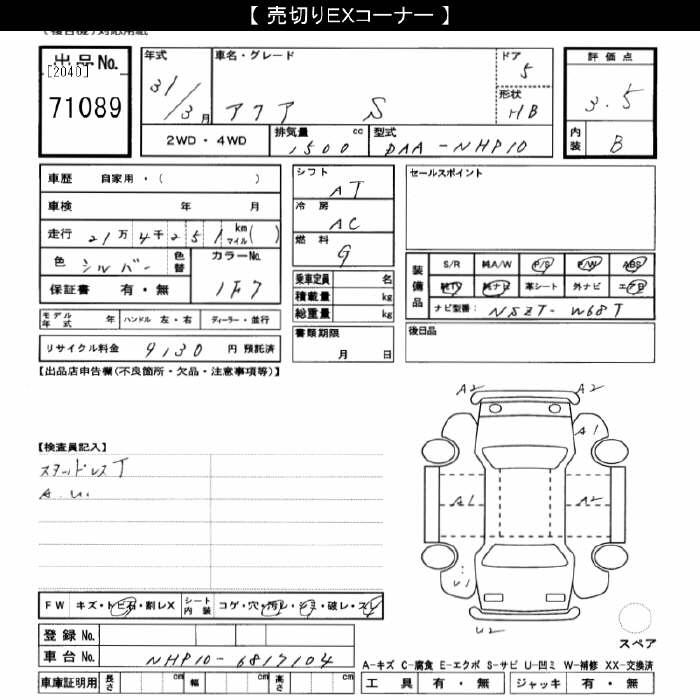 【 売切りEXコーナー 】
出品No.
[2040]
71089
年式
31/3月
車名・グレード
アクア S
ドア
5
形状
HB
評価点
3.5
内装
B
2WD・4WD
排気量 cc
1500
型式
DAA-NHP10
車歴 自家用・( )
車検 年 月
走行 21万4千251 km マイル( )
色 シルバー 色替
カラーNo.
1F7
保証書 有・無
モデル年式 年 ハンドル 左・右 ディーラー・並行
リサイクル料金 9130 円 預託済
シフト
AT
冷房
AC
燃料
G
乗車定員 名
積載量 kg
総重量 kg
書類期限
月 日
セールスポイント
装備品
S/R 純A/W P/S P/W ABS
純TV 純ナビ 革シート 外ナビ エアB
ナビ型番: NSZT-W68T
後日品
【出品店申告欄(不良箇所・欠品・注意事項等)】
【検査員記入】
スタッドレスT
A.U.
A2 A2
A1
A1 A2
U1
U2
スペア
FW キズ・トビ石・割レX シート内装 コゲ・穴・汚レ・シミ・破レ・スレ
登録No.
車台No. NHP10-6817104
車庫証明用 長さ cm 幅 cm 高さ cm
A-キズ C-腐食 E-エクボ S-サビ U-凹ミ W-補修 XX-交換済
工具 有・無 ジャッキ 有・無